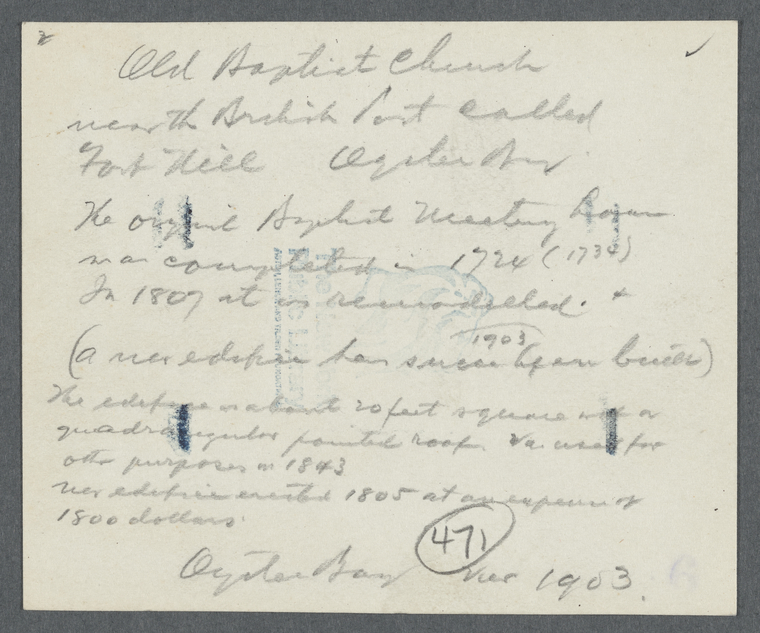 2
Old Baptist Church
near the British Fort called
Fort Hill Oyster Bay
The original Baptist Meeting house
was completed in 1724 (1734)
In 1807 it is remodelled. +
1903
(a new edifice has since been built)
The edifice is about 20 feet square with a
quadrangular pointed roof. Was used for
other purposes in 1843
new edifice erected 1805 at an expense of
1800 dollars.
471
Oyster Bay 1903.
6